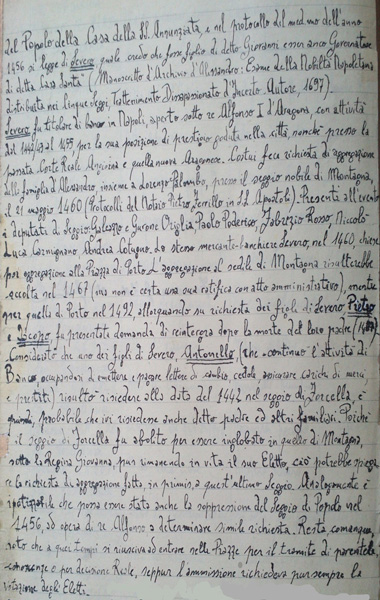 del Popolo della Casa della SS. Annunziata, e nel protocollo del medesimo dell'anno
1456 si legge di Severo quale credo che fosse figlio di detto Giovanni esser anco Governatore
di detta Casa Santa" (Manoscritto d'Archivio d'Alessandro: Esame della Nobiltà Napoletana
distribuita nei cinque Seggi, Trattenimento Disappassionato d'Incerto Autore, 1697).
Severo fu titolare di banco in Napoli, aperto sotto re Alfonso I d'Aragona, con attività
dal 1442/43 al 1455 per la sua posizione di prestigio goduta nella città, nonché presso la
passata Corte Reale Angioina e quella nuova Aragonese. Costui fece richiesta di aggregazione
della famiglia d'Alessandro, insieme a Lorenzo Palumbo, presso il seggio nobile di Montagna,
il 21 maggio 1460 (Protocolli del Notaio Pietro Ferrillo in SS. Apostoli). Presenti all'evento
i deputati di Seggio: Galeazzo e Gurone Origlia, Paolo Poderico, Fabrizio Rosso, Niccolò
Luca Carmignano, Andrea Cotugno. Lo stesso mercante-banchiere Severo, nel 1460, chiese
poi aggregazione alla Piazza di Porto. L'aggregazione al sedile di Montagna risulterebbe
accolta nel 1467 (ma non è certa una sua ratifica con atto amministrativo), mentre
per quella di Porto nel 1492, allorquando su richiesta dei figli di Severo, Pietro
e fu presentata domanda di reintegra dopo la morte del loro padre
Considerato che uno dei figli di Severo, Antonello (che continuò l'attività di
Banco, occupandosi di emettere e pagare lettere di cambio, cedole, assicurare carichi di merci
e prestiti) risultò risiedere alla data del 1442 nel seggio di Forcella, è
quindi, probabile che ivi risiedesse anche detto padre ed altri familiari. Poiché
il seggio di Forcella fu abolito per essere inglobato in quello di Montagna,
sotto la Regina Giovanna, pur rimanendo in vita il suo Eletto, ciò potrebbe spiega-
re la richiesta di aggregazione fatta, in primis, a quest'ultimo Seggio. Analogamente è
ipotizzabile che possa essere stata anche la soppressione del Seggio di Popolo nel
1456, ad opera di re Alfonso a determinare simile richiesta. Resta comunque
noto che a quei tempi si riusciva ad entrare nelle Piazze per il tramite di parentele,
conoscenze o per decisione Reale, seppur l'ammissione richiedeva pur sempre la
votazione degli Eletti.